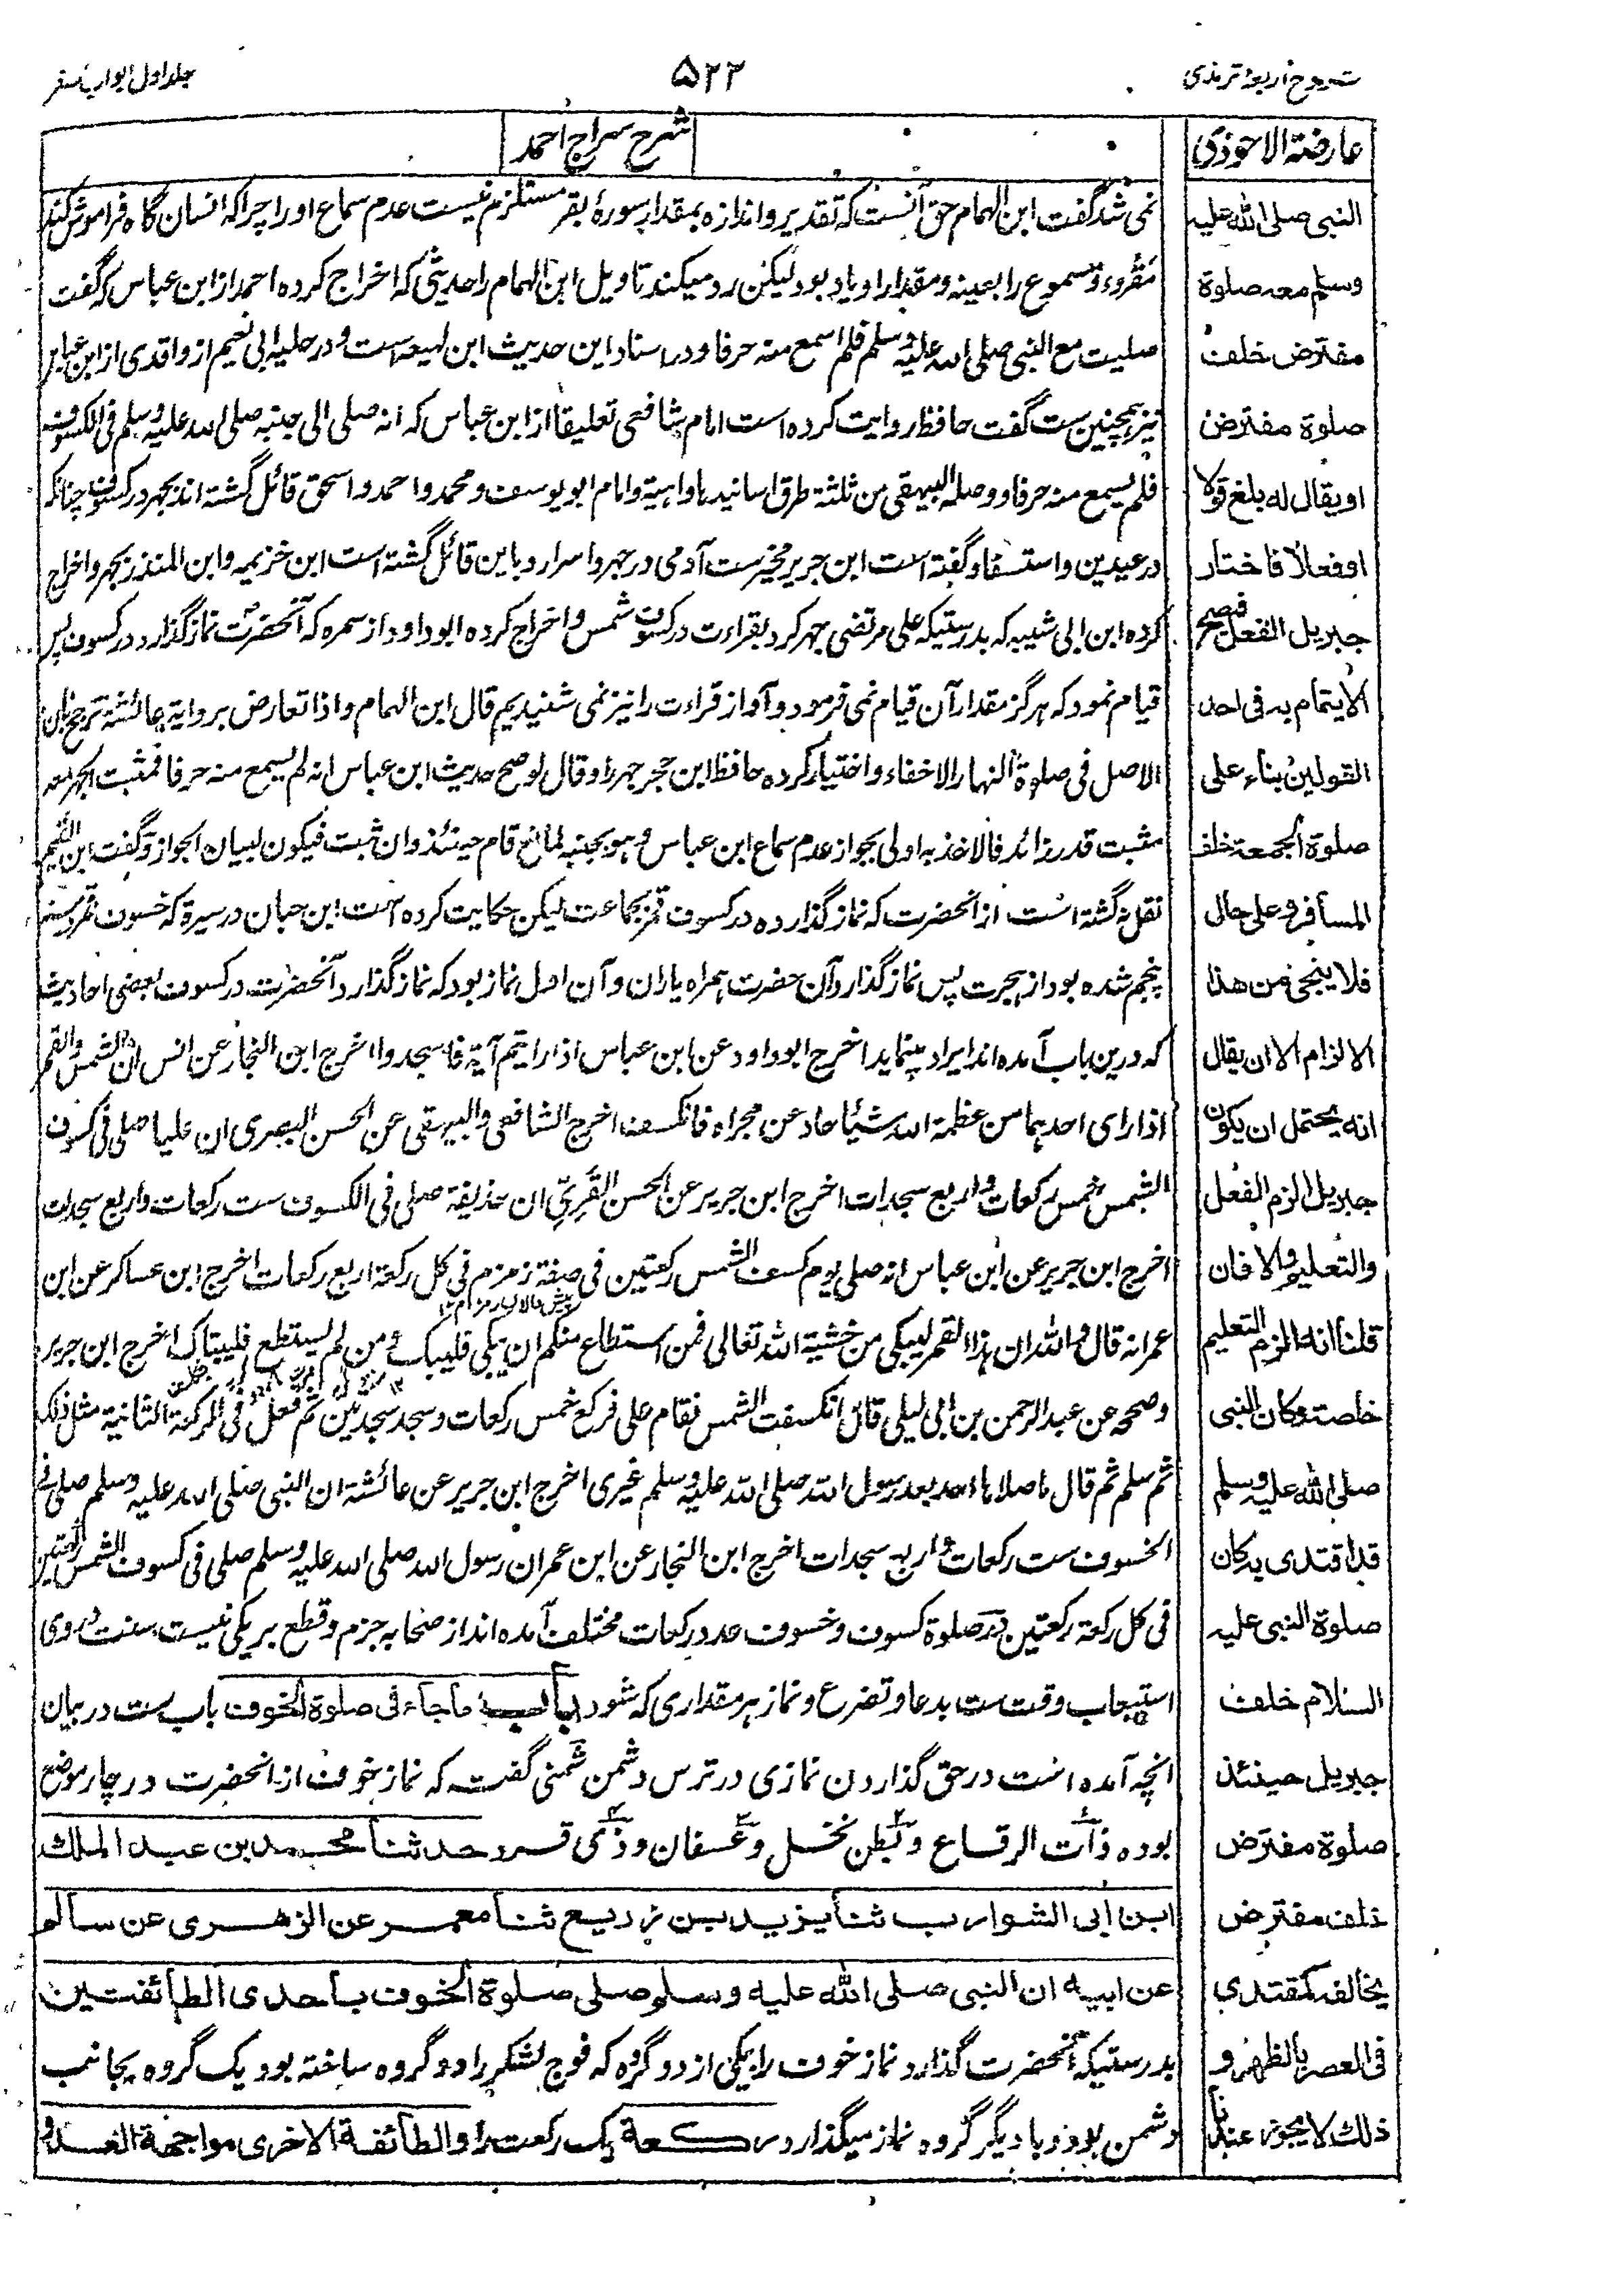 شروح اربعۂ ترمذی
۵۲۲
جلد اول ابواب السفر
عارضة الاحوذی
النبی صلی الله علیه
وسلم معه صلوة
مفترض خلف
صلوة مفترض
او یقال له بلغ قولا
اوفعلا فاختار
جبریل الفعل فیصح
الایتمام به فی احد
القولین بناء علی
صلوة الجمعة خلف
المسافر وعلی حال
فلا ینجی من هذا
الالزام الا ان یقال
انه یحتمل ان یکون
جبریل الزم الفعل
والتعلیم والا فان
قلنا انه الزم التعلیم
خاصة وکان النبی
صلی الله علیه وسلم
قد اقتدی به کان
صلوة النبی علیه
السلام خلف
جبریل حینئذ
صلوة مفترض
خلف مفترض
یخالف کمقتدی
فی العصر بالظهر و
ذلك لا یجوز عندنا
شرح سراج احمد
نمی شد گفت ابن الهمام حق آنست که تقدیر و اندازه بمقدار سورۂ بقر مستلزم نیست عدم سماع او را چرا که انسان گاه فراموش کند
مقروء و مسموع را بعینه و مقدار او یاد بود لیکن رد میکند تاویل ابن الهمام را حدیثی که اخراج کرده احمد از ابن عباس که گفت
صلیت مع النبی صلی الله علیه وسلم فلم اسمع منه حرفا و در اسناد این حدیث ابن لهیعه است و در حلیه ابی نعیم از واقدی از ابن عباس
نیز همچنین ست گفت حافظ روایت کرده است امام شافعی تعلیقا از ابن عباس که انه صلی الی جنبه صلی الله علیه وسلم فی الکسوف
فلم یسمع منه حرفا و وصله البیهقی من ثلثة طرق اسانیدها واهیة و امام ابو یوسف و محمد و احمد و اسحق قائل گشته اند بجهر در کسوف چنانکه
در عیدین و استسقا و گفته است ابن جریر مخیرست آدمی در جهر و اسرار و باین قائل گشته است ابن خزیمه و ابن المنذر بجهر و اخراج
کرده ابن ابی شیبه که بدرستیکه علی مرتضی جهر کرد بقراءت در کسوف شمس و اخراج کرده ابو داود از سمره که آنحضرت نماز گذارد در کسوف پس
قیام نمود که هرگز مقدار آن قیام نمی فرمود و آواز قراءت را نیز نمی شنیدیم قال ابن الهمام و اذا تعارض بروایة عائشة ترجح بان
الاصل فی صلوة النهار الاخفاء و اختیار کرده حافظ ابن حجر جهر را و قال لو صح حدیث ابن عباس انه لم یسمع منه حرفا فمثبت الجهر معه
مثبت قدر زائد فالاخذ به اولی بجواز عدم سماع ابن عباس وهو بجنبه لمانع قام حینئذ و ان ثبت فیکون لبیان الجواز و گفت ابن القیم
نقل نه گشته است از آنحضرت که نماز گذارده در کسوف قمر بجماعت لیکن حکایت کرده است ابن حبان در سیرة که خسوف قمر در سنه
پنجم شده بود از هجرت پس نماز گذارد آن حضرت همراه یاران و آن اول نماز بود که نماز گذارد آنحضرت در کسوف بعضی احادیث
که درین باب آمده اند ایراد مینماید اخرج ابو داود عن ابن عباس اذا رایتم آیة فاسجدوا اخرج ابن النجار عن انس ان الشمس والقمر
اذا رای احدهما من عظمة الله شیئا حاد عن مجراه فانکسف اخرج الشافعی والبیهقی عن الحسن البصری ان علیا صلی فی کسوف
الشمس خمس رکعات و اربع سجدات اخرج ابن جریر عن الحسن العُرَنِیّ ان حذیفة صلی فی الکسوف ست رکعات و اربع سجدات
اخرج ابن جریر عن ابن عباس انه صلی یوم کسف الشمس رکعتین فی صفة زمزم فی کل رکعة اربع رکعات اخرج ابن عساکر عن ابن
عمر انه قال والله ان هذا القمر لیبکی من خشیة الله تعالی فمن استطاع منکم ان یبکی فلیبک ومن لم یستطع فلیتباك اخرج ابن جریر
وصححه عن عبد الرحمن بن ابی لیلی قال انکسفت الشمس فقام علی فرکع خمس رکعات وسجد سجدتین ثم فعل فی الرکعة الثانیة مثل ذلك
ثم سلم ثم قال ما صلاها احد بعد رسول الله صلی الله علیه وسلم غیری اخرج ابن جریر عن عائشة ان النبی صلی الله علیه وسلم صلی فی
الخسوف ست رکعات و اربع سجدات اخرج ابن النجار عن ابن عمر ان رسول الله صلی الله علیه وسلم صلی فی کسوف الشمس رکعتین
فی کل رکعة رکعتین در صلوة کسوف و خسوف عدد رکعات مختلف آمده اند از صحابه جزم و قطع بر یکی نیست سنت مروی
استیعاب وقت ست بدعا و تضرع و نماز هر مقداری که شود باب ما جاء فی صلوة الخوف باب ست در بیان
آنچه آمده است در حق گذاردن نمازی در ترس دشمن شمنی گفت که نماز خوف از آنحضرت در چار موضع
بوده ذات الرقاع و بطن نخل و عسفان و ذی قرد حدثنا محمد بن عبد الملك
ابن ابی الشوارب ثنا یزید بن زریع ثنا معمر عن الزهری عن سالم
عن ابیه ان النبی صلی الله علیه وسلم صلی صلوة الخوف باحدی الطائفتین
بدرستیکه آنحضرت گذارد نماز خوف را بیکی از دو گروه که فوج لشکر را دو گروه ساخته بود یک گروه بجانب
دشمن بود و با دیگر گروه نماز میگذارد رکعة یک رکعت را والطائفة الاخری مواجهة العدو